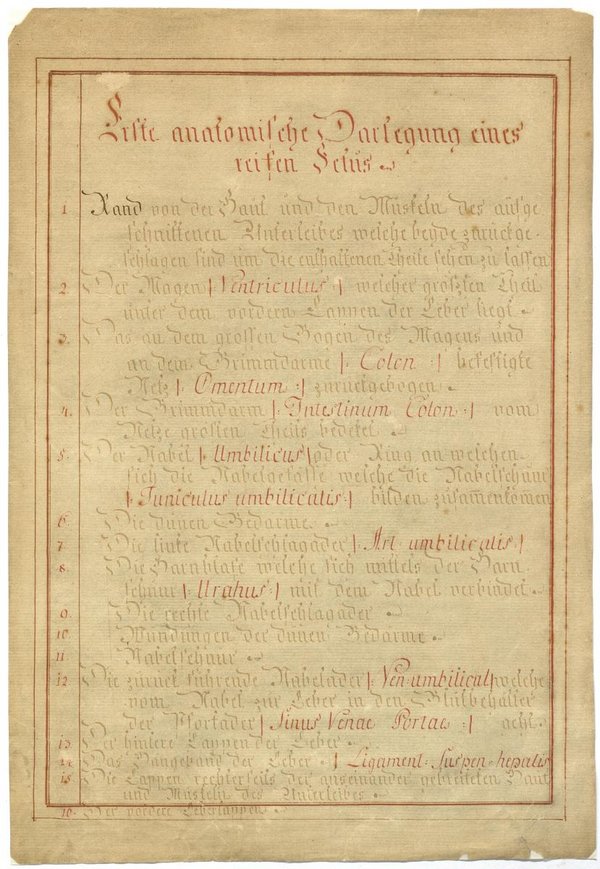 Erste anatomische Darlegung eines
reifen Fetus
1 Rand von der Haut und den Muskeln des aufge
schnittenen Unterleibes welche beyde zurückge-
schlagen sind um die enthaltenen theile sehen zu lassen
2. Der Magen |: Ventriculus :| welcher grösten Theil
unter dem vordern Lappen der Leber liegt
3. Das an dem grossen Bogen des Magens und
an dem Grimmdarme |: Colon :| befestigte
Netz |: Omentum :| zurückgebogen
4. Der Grimmdarm |: Intestinum Colon :| vom
Netze grosten Theils bedeket
5. Der Nabel |: Umbilicus :| oder Ring an welchen
sich die Nabelgefässe welche die Nabelschnur
|: Funiculus umbilicalis :| bilden zusamenkomen
6. Die dünen Gedärme
7. Die linke Nabelschlagader |: Art umbilicalis :|
8. Die Harnblase welche sich mittels der Harn
schnur |: Urahus :| mit dem Nabel verbindet
9. Die rechte Nabelschlagader
10. Windungen der dünen Gedärme
11. Nabelschnur
12 Die zurück führende Nabelader |: Ven umbilical :| welche
vom Nabel zur Leber in den Blutbehälter
der Pfortader |: Sinus Venae Portae :| geht
13. Der hintere Lappen der Leber
14. Das Hangeband der Leber |: Ligament. suspen. hepatis
15. Die Lappen rechterseits der auseinander gebreiteten Haut
und Muskeln des Unterleibes
16. Der vordere Leberlappen